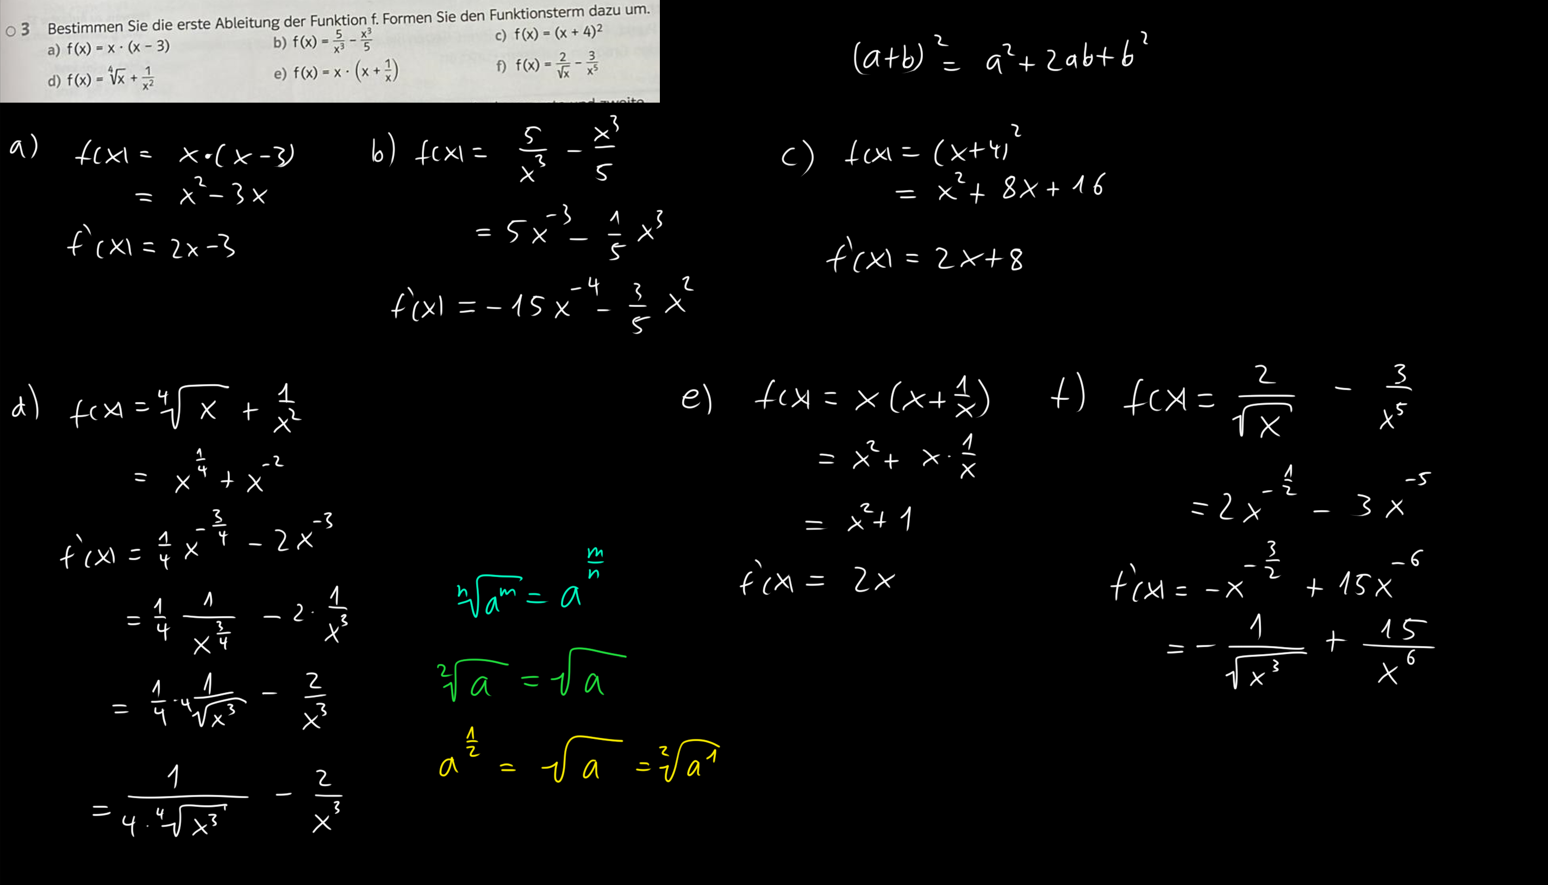 ○ 3 Bestimmen Sie die erste Ableitung der Funktion f. Formen Sie den Funktionsterm dazu um.
a) f(x) = x · (x − 3) b) f(x) = 5/x³ − x³/5 c) f(x) = (x + 4)²
d) f(x) = ⁴√x + 1/x² e) f(x) = x · (x + 1/x) f) f(x) = 2/√x − 3/x⁵
(a+b)² = a² + 2ab + b²
a) f(x) = x·(x−3)
= x² − 3x
f'(x) = 2x−3
b) f(x) = 5/x³ − x³/5
= 5x⁻³ − 1/5 x³
f'(x) = −15x⁻⁴ − 3/5 x²
c) f(x) = (x+4)²
= x² + 8x + 16
f'(x) = 2x+8
d) f(x) = ⁴√x + 1/x²
= x^(1/4) + x⁻²
f'(x) = 1/4 x^(−3/4) − 2x⁻³
= 1/4 1/x^(3/4) − 2· 1/x³
= 1/4 · 1/⁴√x³ − 2/x³
= 1/(4·⁴√x³) − 2/x³
ⁿ√a^m = a^(m/n)
²√a = √a
a^(1/2) = √a = ²√a¹
e) f(x) = x(x+1/x)
= x² + x· 1/x
= x²+1
f'(x) = 2x
f) f(x) = 2/√x − 3/x⁵
= 2x^(−1/2) − 3x⁻⁵
f'(x) = −x^(−3/2) + 15x⁻⁶
= − 1/√x³ + 15/x⁶